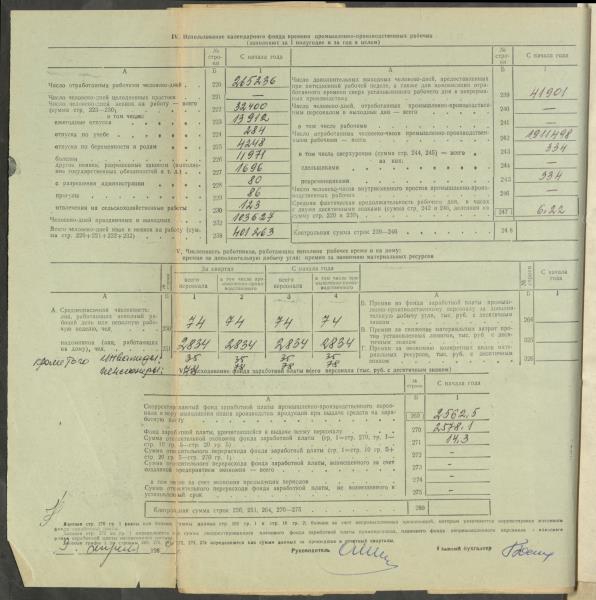 IV. Использование календарного фонда времени промышленно-производственных рабочих
(заполняют за I полугодие и за год в целом)
№ строки
С начала года
№ строки
С начала года
А
Б
1
А
Б
1
Число отработанных рабочими человеко-дней
220
265236
Число человеко-дней целодневных простоев
221
—
Число человеко-дней неявок на работу — всего
(сумма стр. 223—230)
222
32400
в том числе:
ежегодные отпуска
223
13912
отпуска по учебе
224
284
отпуска по беременности и родам
225
4248
болезни
226
11971
другие неявки, разрешенные законом (выполнение государственных обязанностей и т. д.)
227
1696
с разрешения администрации
228
80
прогулы
229
86
отвлечения на сельскохозяйственные работы
230
123
Число человеко-дней праздничных и выходных
232
103627
Всего человеко-дней явок и неявок на работу (сумма стр. 220+221+222+232)
238
401263
Число дополнительных выходных человеко-дней, предоставленных
при пятидневной рабочей неделе, а также для компенсации отработанного времени сверх установленного рабочего дня в непрерывных производствах
239
41901
Число человеко-дней, отработанных промышленно-производственным персоналом в выходные дни — всего
240
—
в том числе рабочими
—
Число отработанных человеко-часов промышленно-производственными рабочими — всего
242
1911498
в том числе сверхурочно (сумма стр. 244, 245) — всего
243
334
из них:
сдельщиками
244
—
повременщиками
245
334
Число человеко-часов внутрисменного простоя промышленно-производственных рабочих
246
—
Средняя фактическая продолжительность рабочего дня, в часах
с двумя десятичными знаками
247
Контрольная сумма строк 220—246
248
V. Численность работников, работающих неполное рабочее время и на дому;
премии за дополнительную добычу угля; премии за экономию материальных ресурсов
№ строки
За квартал
С начала года
всего персонала
в том числе промышленно-производственного
всего персонала
в том числе промышленно-производственного
№ строки
С начала года
1
2
3
4
А. Среднесписочная численность:
лиц, работающих неполный рабочий день или неполную рабочую неделю, чел.
250
74
74
74
74
надомников (лиц, работающих на дому), чел.
251
2834
2834
2834
2834
кроме того инвалиды:
35
35
35
35
пенсионеры:
78
78
78
78
Б. Премии из фонда заработной платы промышленно-производственному персоналу за дополнительную добычу угля, тыс. руб. с десятичным знаком
264
В. Премии за снижение материальных затрат против установленных лимитов, тыс. руб. с десятичным знаком
265
Г. Премии за экономию конкретных видов материальных ресурсов, тыс. руб. с десятичным знаком
VI. Расходование фонда заработной платы всего персонала (тыс. руб. с десятичным знаком)
№ строки
С начала года
А
Б
1
Скорректированный фонд заработной платы промышленно-производственного персонала в меру выполнения плана производства продукции при выдаче средств на заработную плату
269
2562,5
Фонд заработной платы, причитающийся к выдаче всему персоналу
270
2578,1
Сумма относительной экономии фонда заработной платы
271
14,3
Сумма относительного перерасхода фонда заработной платы
272
—
Сумма относительного перерасхода фонда заработной платы, возмещенного за счет созданной предприятием экономии — всего
273
—
в том числе за счет экономии предыдущих периодов
274
—
Сумма относительного перерасхода фонда заработной платы, не возмещенного в установленный срок
275
—
Контрольная сумма строк 250, 251, 264, 270—275
280
апреля 198
Руководитель
Главный бухгалтер